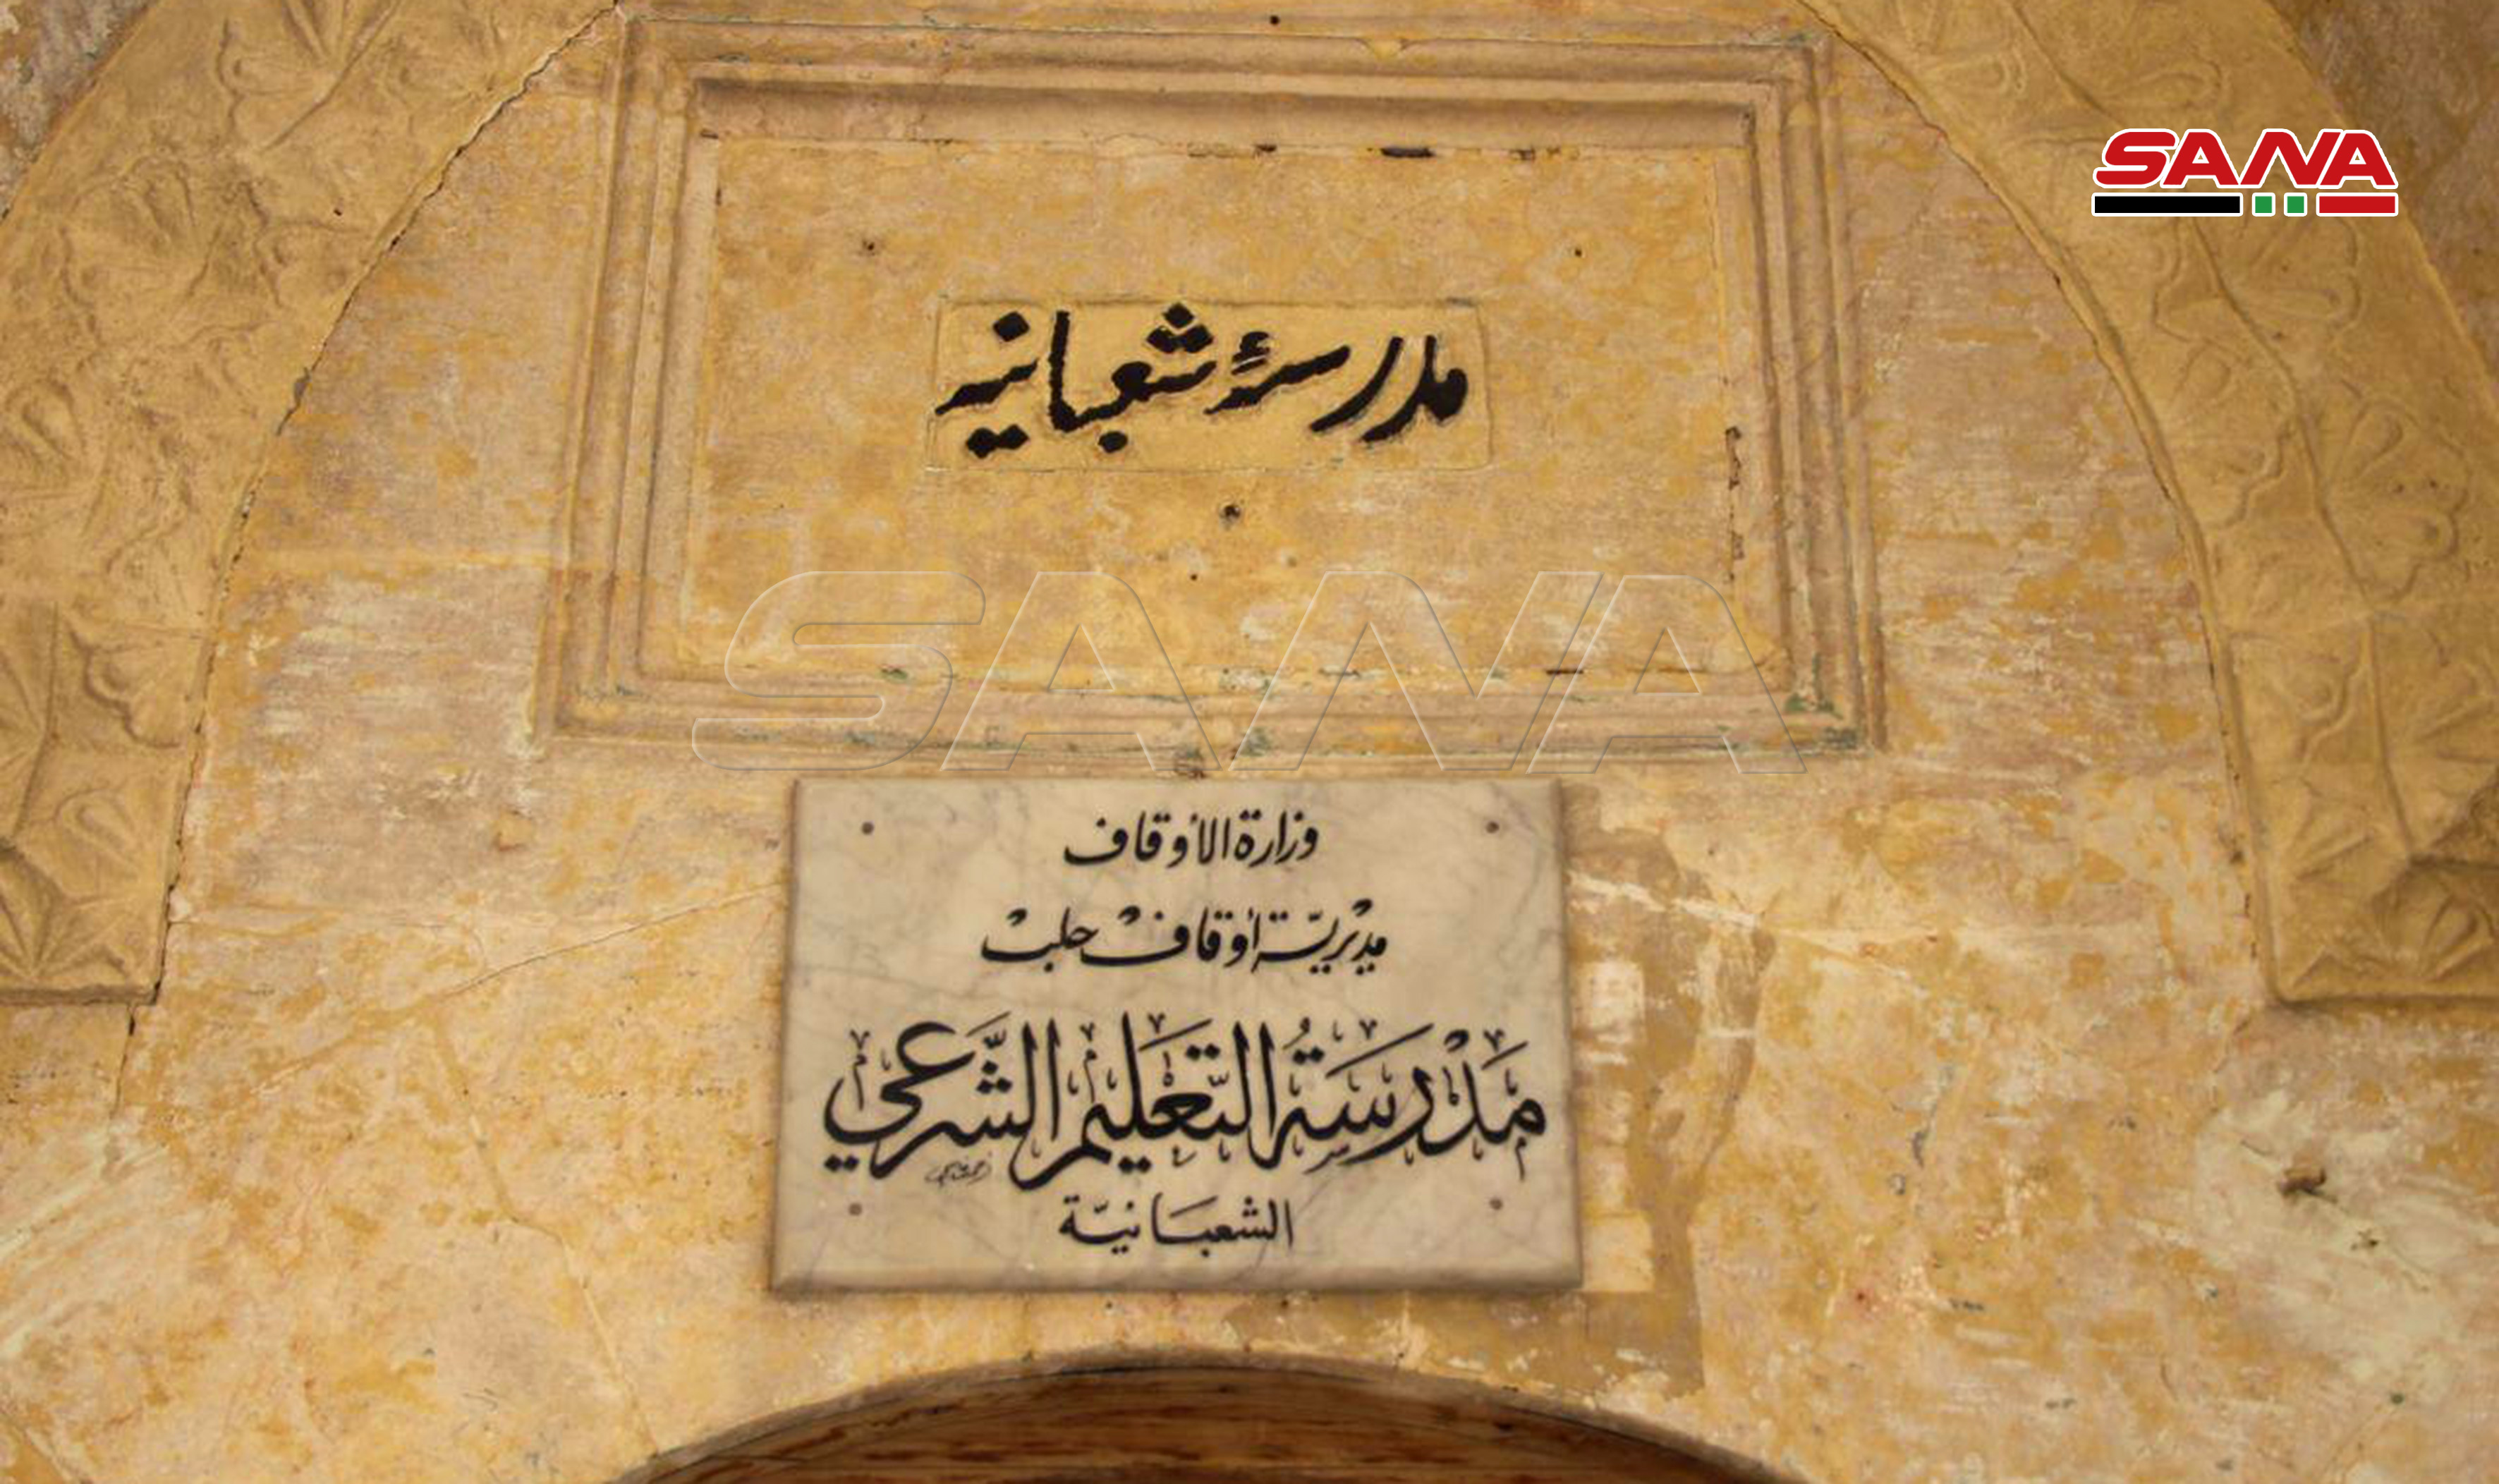 SANA
مدرسۀ شعبانيه
SANA
وزارة الأوقاف
مديريّة أوقاف حلب
مَدْرَسَةُ التَّعَليم الشَّرعي
الشعبَانيّة